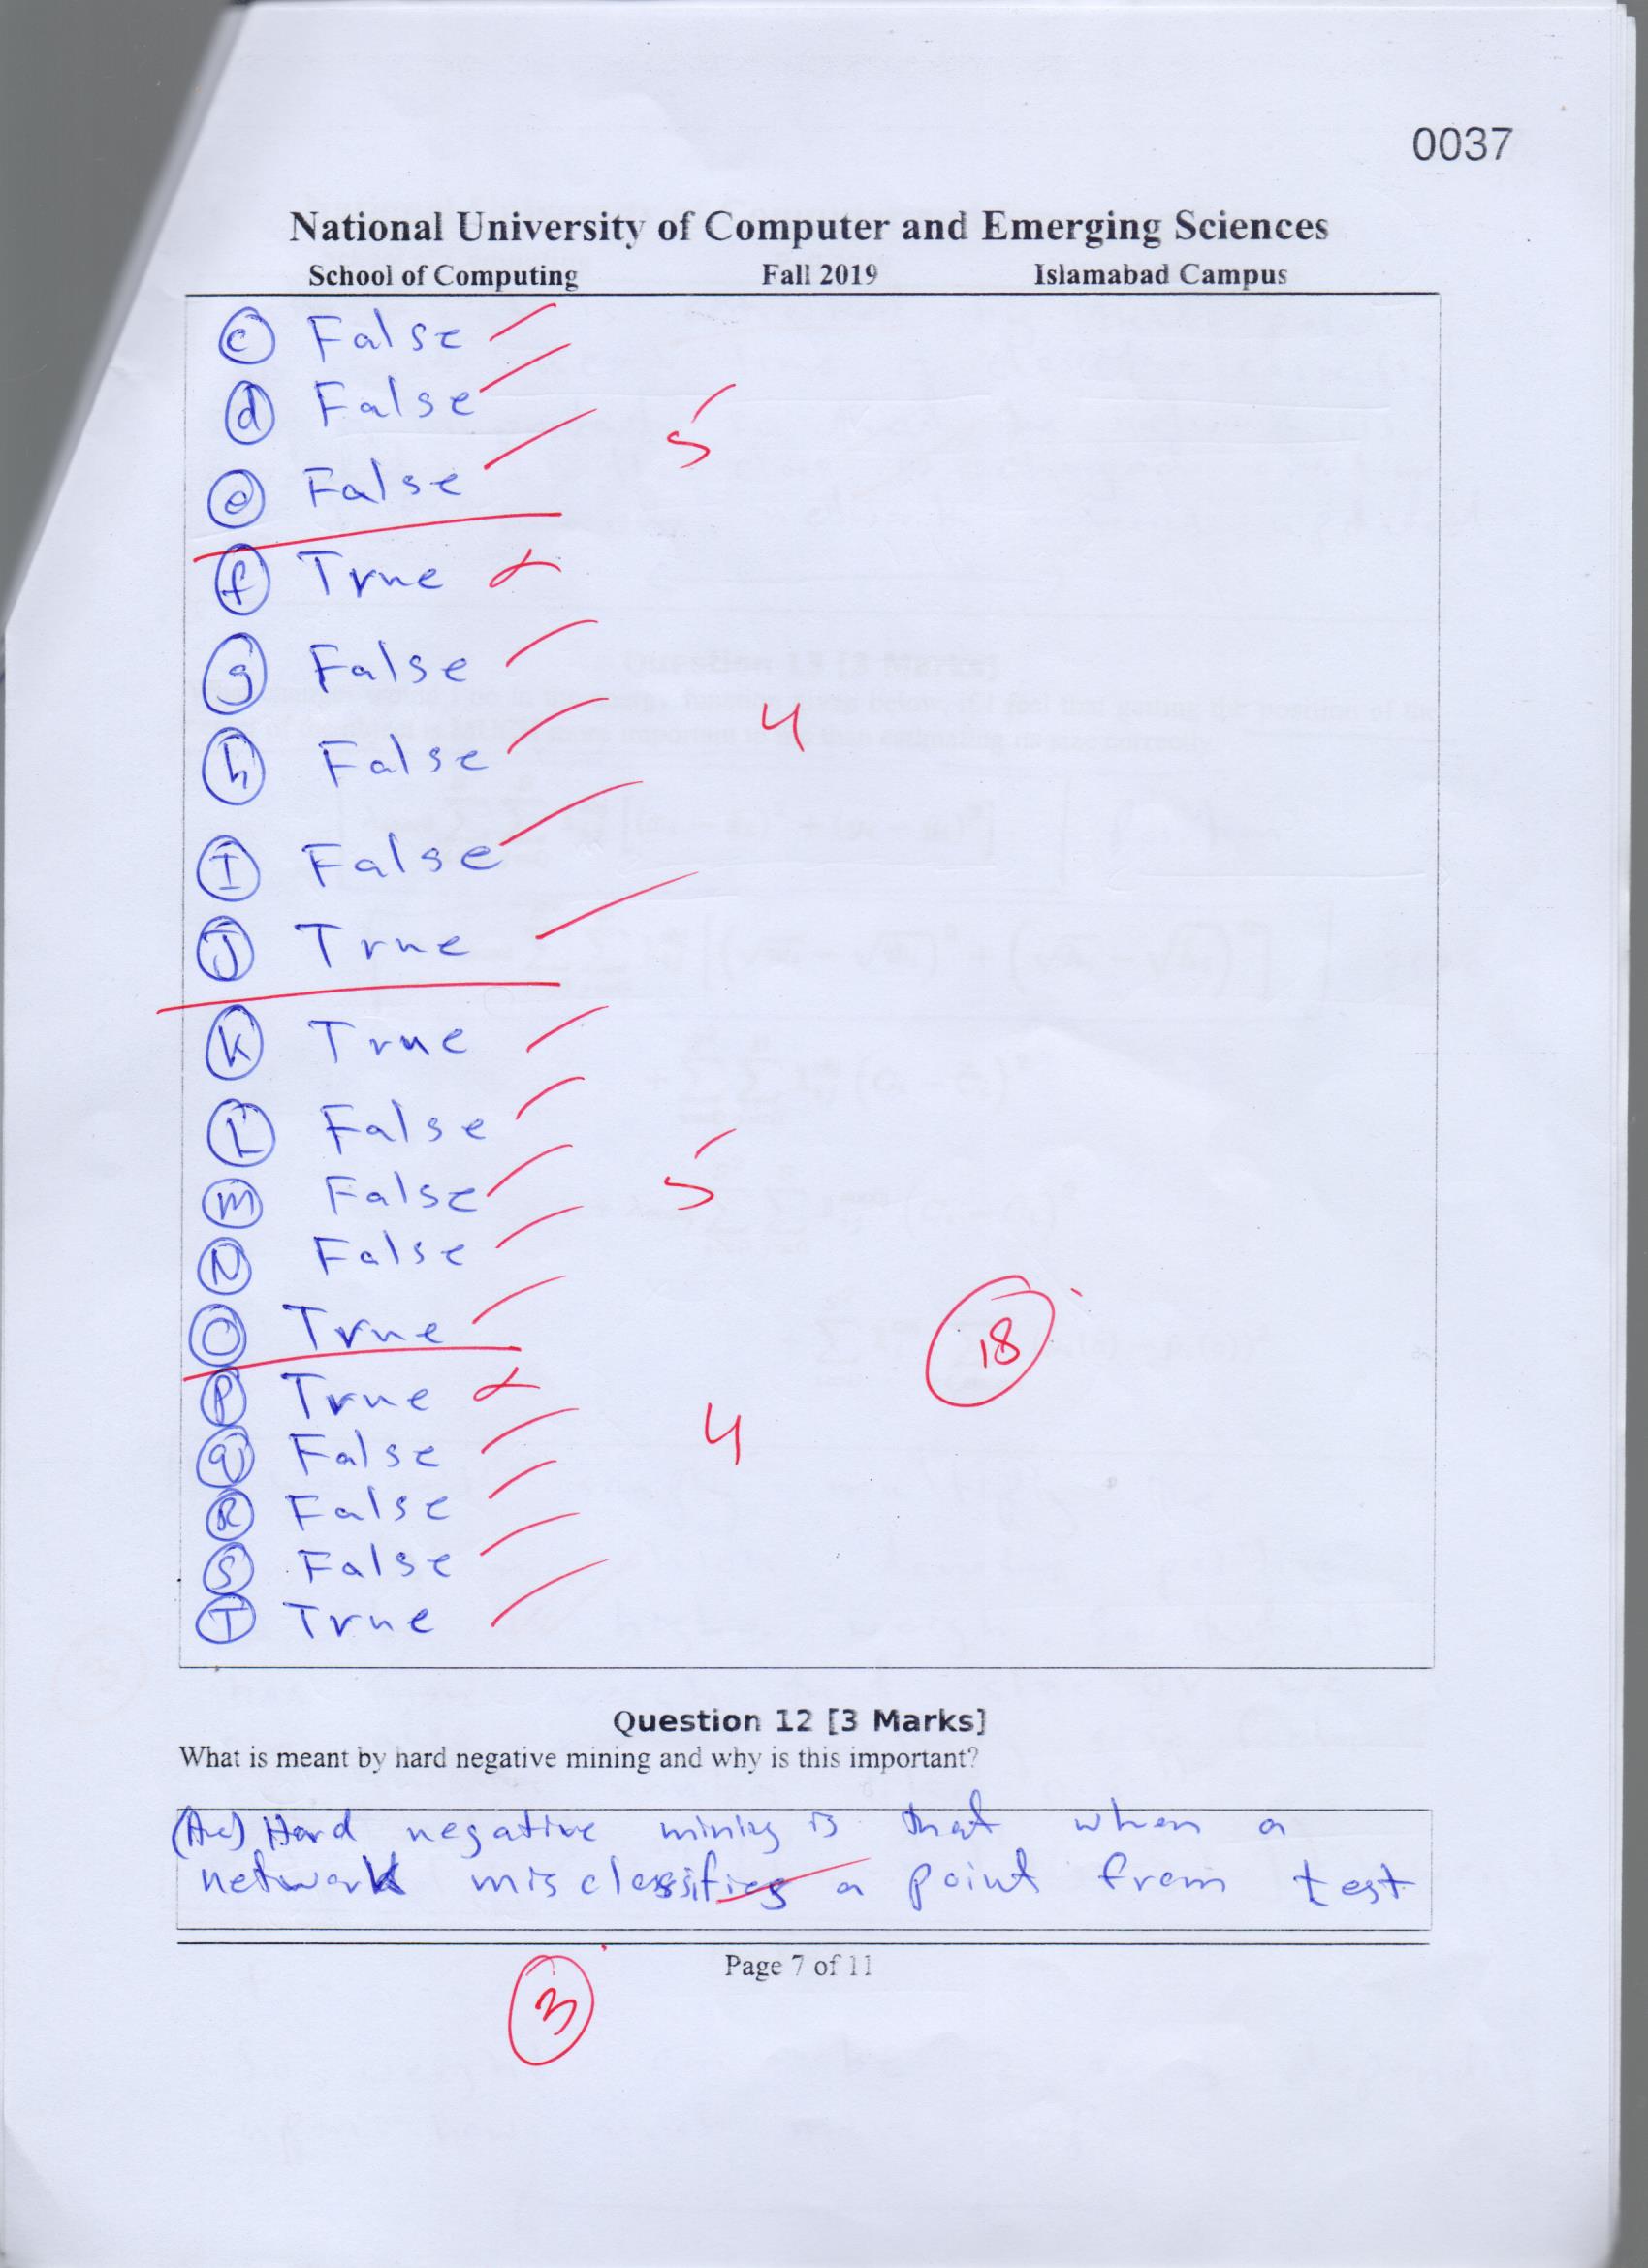 0037
National University of Computer and Emerging Sciences
School of Computing Fall 2019 Islamabad Campus
c False
d False
e False
5
f True
g False
h False
4
I False
J True
K True
L False
m False
5
N False
O True
18
P True
q False
4
R False
S False
T True
Question 12 [3 Marks]
What is meant by hard negative mining and why is this important?
(Ans) Hard negative mining is that when a
network misclassifies a point from test
Page 7 of 11
3